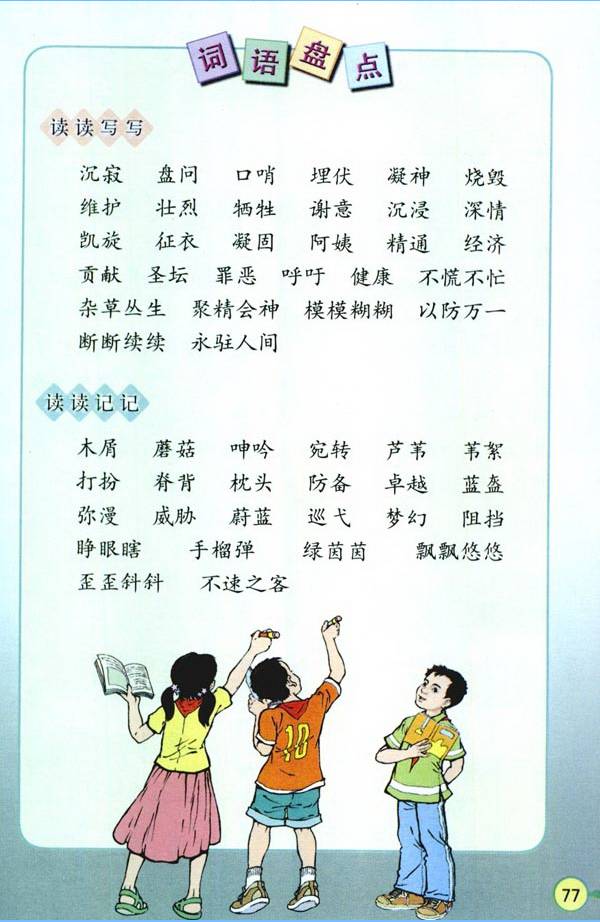 词语盘点
读读写写
沉寂 盘问 口哨 埋伏 凝神 烧毁
维护 壮烈 牺牲 谢意 沉浸 深情
凯旋 征衣 凝固 阿姨 精通 经济
贡献 圣坛 罪恶 呼吁 健康 不慌不忙
杂草丛生 聚精会神 模模糊糊 以防万一
断断续续 永驻人间
读读记记
木屑 蘑菇 呻吟 宛转 芦苇 苇絮
打扮 脊背 枕头 防备 卓越 蓝盔
弥漫 威胁 蔚蓝 巡弋 梦幻 阻挡
睁眼瞎 手榴弹 绿茵茵 飘飘悠悠
歪歪斜斜 不速之客
10
77